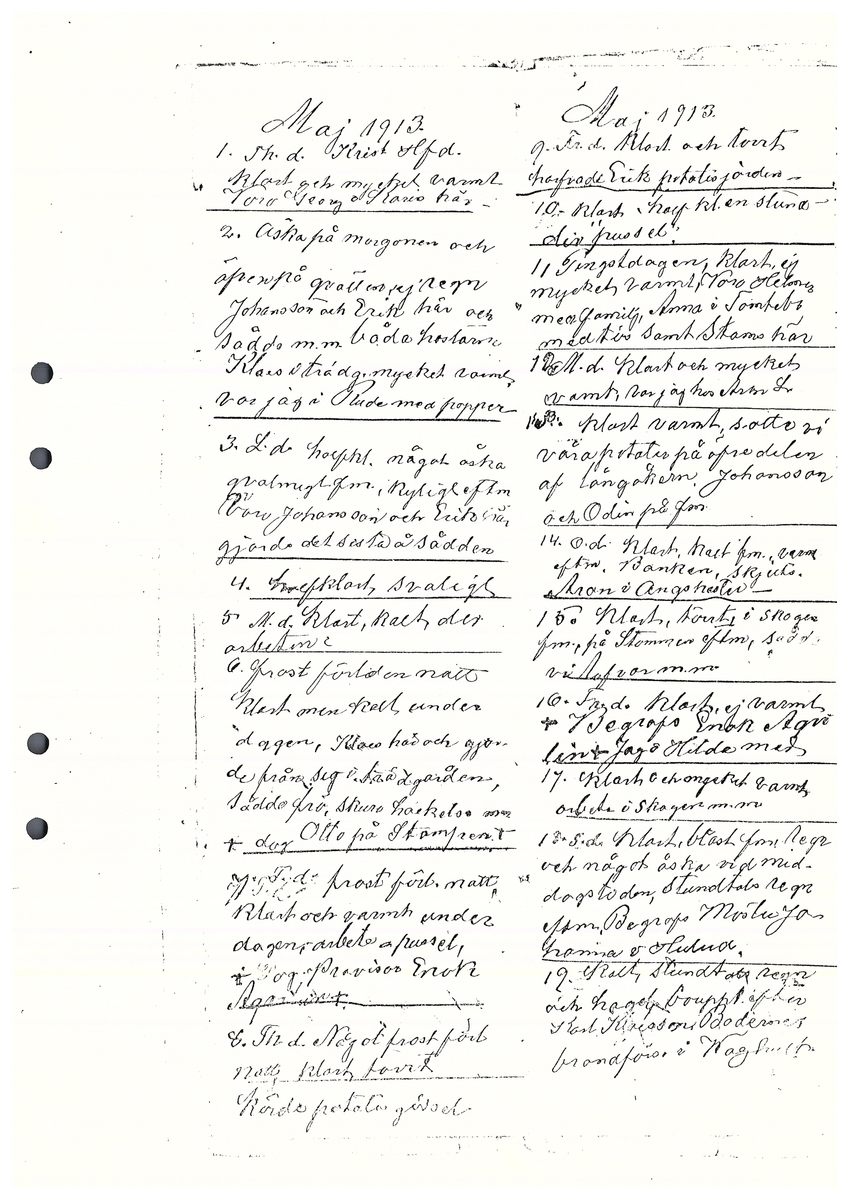 Maj 1913.
1. Th. d. Krist Hfd.
Klart och mycket varmt
Voro Georg o Karis här -
2. Åska på morgonen och
äfven på qvällen, ej regn
Johansson och Erik här och
sådde m.m båda hästarne
Klas i trädg. mycket varmt,
var jag i Rude med papper
3. L. d. halfkl. något åska
qvalmigt fm., kyligt eftm
Voro Johansson och Erik här
gjorde det sista å sådden
4. halfklart, svaligt
5 M. d. Klart, kallt, div
arbeten
6. frost förliden natt
Klart men kallt under
dagen, Klas här och gjor-
de från sig i trädgården,
sådde frö, skuro hackelse
+ dog Otto på Stampen. +
7. frost förl. natt
Klart och varmt under
dagen, arbete o pussel,
+ Dog Provisor Enok
Agrelin +
8. Th. d. Något frost förl
natt, Klart, torrt
Körde potatis gödsel
Maj 1913.
9. Fr. d. Klart och torrt
harfvade Erik potatisjorden -
10. Klart, half kl. en stund -
div "pussel".
11 Pingstdagen, Klart, ej
mycket varmt, Voro
med familj, Anna i Tomtebo
samt Stams här
12 M. d. Klart och mycket
varmt, var jag hos
13. Klart varmt, satte vi
våra potatis på öfre delen
af långåkern. Johansson
och Odin på fm
14. O. d. Klart, kallt fm., varmt
eftm. Banken, skjuts.
Aron i
15. Klart, torrt, i skogen
fm., på Stommen eftm, sådde
vi hafvor m.m
16. Fr. d. Klart, ej varmt
+ Begrofs Enok Agre
lin + Jag o Hilda med
17. Klart och mycket varmt
arbete i skogen m.m
18. S. d. Klart, blåst fm, regn
och något åska vid mid-
dagstiden, stundtals regn
eftm, Begrofs Moster Jo
hanna i Hulud.
19. Kallt, stundtals regn
och hagel, bouppt. efter
Karl
brandförs. i